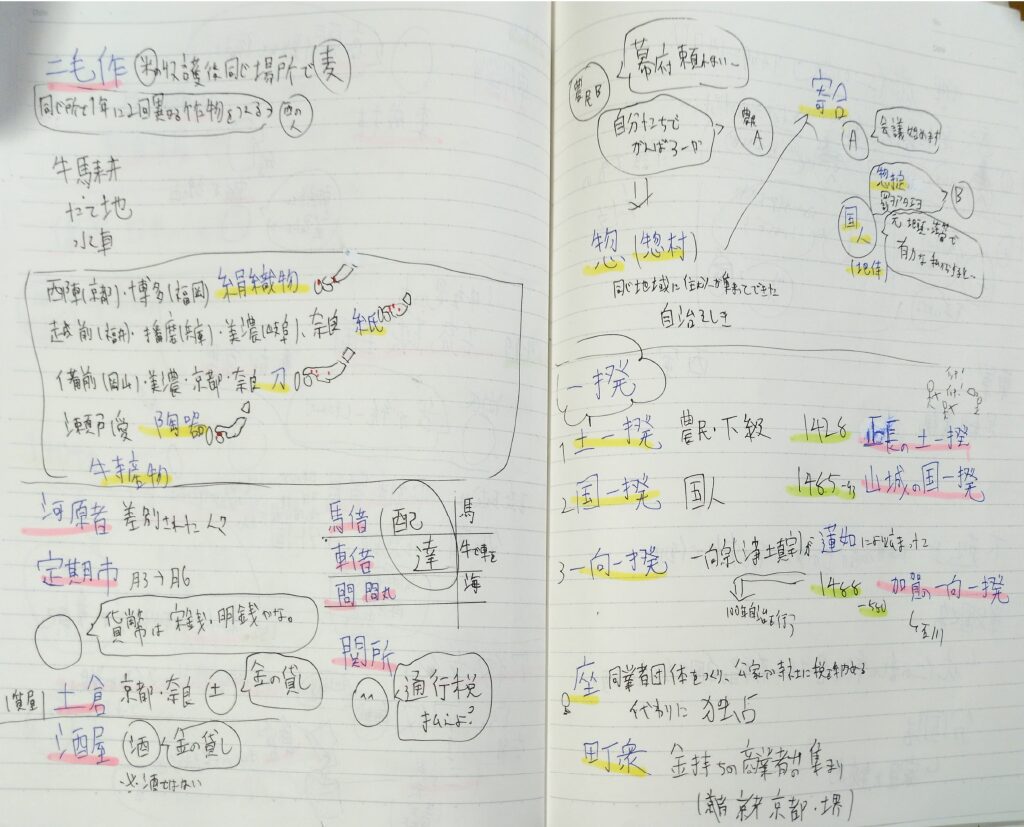 二毛作 米の収護後同じ場所で麦
同じ所で1年に2回異なる作物をつくる→西の人
牛馬耕
たて地
水車
西陣(京都)・博多(福岡) 絹織物
越前(福井)・播磨(兵庫)・美濃(岐阜)、奈良 紙
備前(岡山)・美濃・京都・奈良 刀
瀬戸愛 陶器
特産物
河原者 差別された人々
定期市 月3→月6
貨幣は宋銭、明銭かな。
質屋 土倉 京都・奈良 土 金の貸し
酒屋 酒 金の貸し
※酒ではない
馬借 配達 馬
車借 牛で車を
問 問丸 海
関所
通行税
払いよ?
農民B 幕府頼れない〜
自分たちで
がんばろーか
農民A
寄合
A 会議始めます
惣掟
B
国人
(地侍
元地頭・
有力な
惣(惣村)
同じ地域に住む人が集まってできた
自治そしき
一揆
1 土一揆 農民・下級 1428 正長の土一揆
2 国一揆 国人 1485〜93 山城の国一揆
3 一向一揆 一向宗(浄土真宗)が蓮如により広まった
1488 加賀の一向一揆
〜1580
100年自治を行う
石川
座 同業者団体をつくり、公家や寺社に税を納める
代わりに 独占
町衆 金持ちの商業者の集まり
京都・堺)